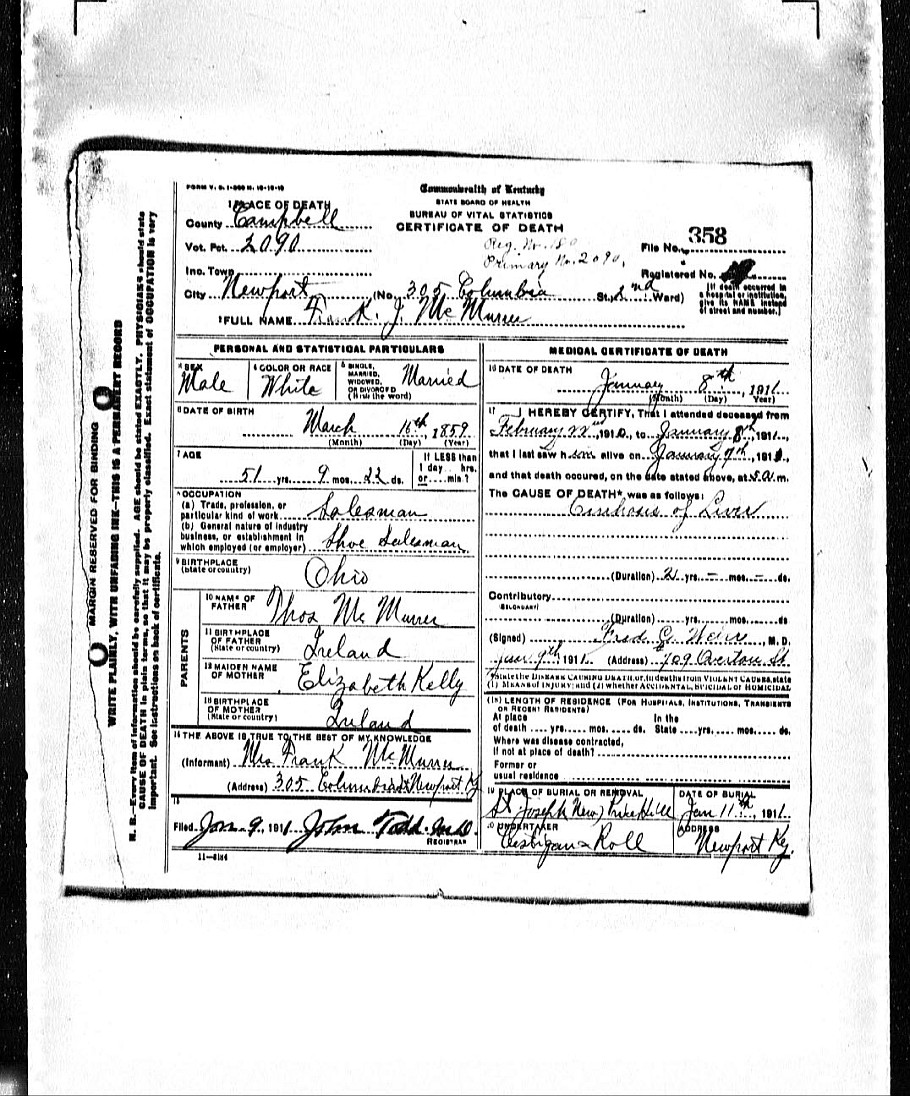 FORM V. S. 1-
Commonwealth of Kentucky
STATE BOARD OF HEALTH
BUREAU OF VITAL STATISTICS
CERTIFICATE OF DEATH
1 PLACE OF DEATH
County Campbell
Vot. Pct. 2090
Inc. Town
City Newport (No. 305 Columbia St., 2nd Ward)
Reg. No.
Primary No. 2090.
File No. 358
Registered No.
[If death occurred in a hospital or institution, give its NAME instead of street and number.]
2 FULL NAME Frank. J. McMurrer
PERSONAL AND STATISTICAL PARTICULARS
3 SEX Male
4 COLOR OR RACE White
5 SINGLE, MARRIED, WIDOWED, OR DIVORCED (Write the word) Married
6 DATE OF BIRTH
March 16th, 1859
(Month) (Day) (Year)
7 AGE
51 yrs. 9 mos. 22 ds.
If LESS than 1 day.. hrs. or... min.?
8 OCCUPATION
(a) Trade, profession, or particular kind of work Salesman
(b) General nature of industry business, or establishment in which employed (or employer) Shoe Salesman
9 BIRTHPLACE (State or country) Ohio
PARENTS
10 NAME OF FATHER Thos McMurrer
11 BIRTHPLACE OF FATHER (State or country) Ireland
12 MAIDEN NAME OF MOTHER Elizabeth Kelly
13 BIRTHPLACE OF MOTHER (State or country) Ireland
14 THE ABOVE IS TRUE TO THE BEST OF MY KNOWLEDGE
(Informant) Mrs Frank McMurrer
(Address) 305 Columbia St Newport Ky
15
Filed Jan. 9, 1911 John Todd. M.D
REGISTRAR
MEDICAL CERTIFICATE OF DEATH
16 DATE OF DEATH
January 8th, 1911
(Month) (Day) (Year)
17 I HEREBY CERTIFY, That I attended deceased from
February 22nd, 1910, to January 8th, 1911,
that I last saw him alive on January 7th, 1911,
and that death occured, on the date stated above, at 5 A.m.
The CAUSE OF DEATH* was as follows:
Cirrhosis of Liver
(Duration) 2 yrs. – mos. – ds.
Contributory
(SECONDARY)
(Duration) yrs. mos. ds.
(Signed) Fred M.D.
Jan. 9th 1911. (Address) 709 Overton St
*State the DISEASE CAUSING DEATH, or, in deaths from VIOLENT CAUSES, state
(1) MEANS OF INJURY; and (2) whether ACCIDENTAL, SUICIDAL or HOMICIDAL
(18) LENGTH OF RESIDENCE (FOR HOSPITALS, INSTITUTIONS, TRANSIENTS OR RECENT RESIDENTS)
At place of death yrs. mos. ds. In the State yrs. mos. ds.
Where was disease contracted,
if not at place of death?
Former or
usual residence
19 PLACE OF BURIAL OR REMOVAL
St. Joseph New Price Hill
DATE OF BURIAL
Jan 11th, 1911.
20 UNDERTAKER
Roll
ADDRESS
Newport Ky.
MARGIN RESERVED FOR BINDING
WRITE PLAINLY, WITH UNFADING INK—THIS IS A PERMANENT RECORD
N. B.—Every item of information should be carefully supplied. AGE should be stated EXACTLY. PHYSICIANS should state
CAUSE OF DEATH in plain terms, so that it may be properly classified. Exact statement of OCCUPATION is very
important. See instructions on back of certificate.